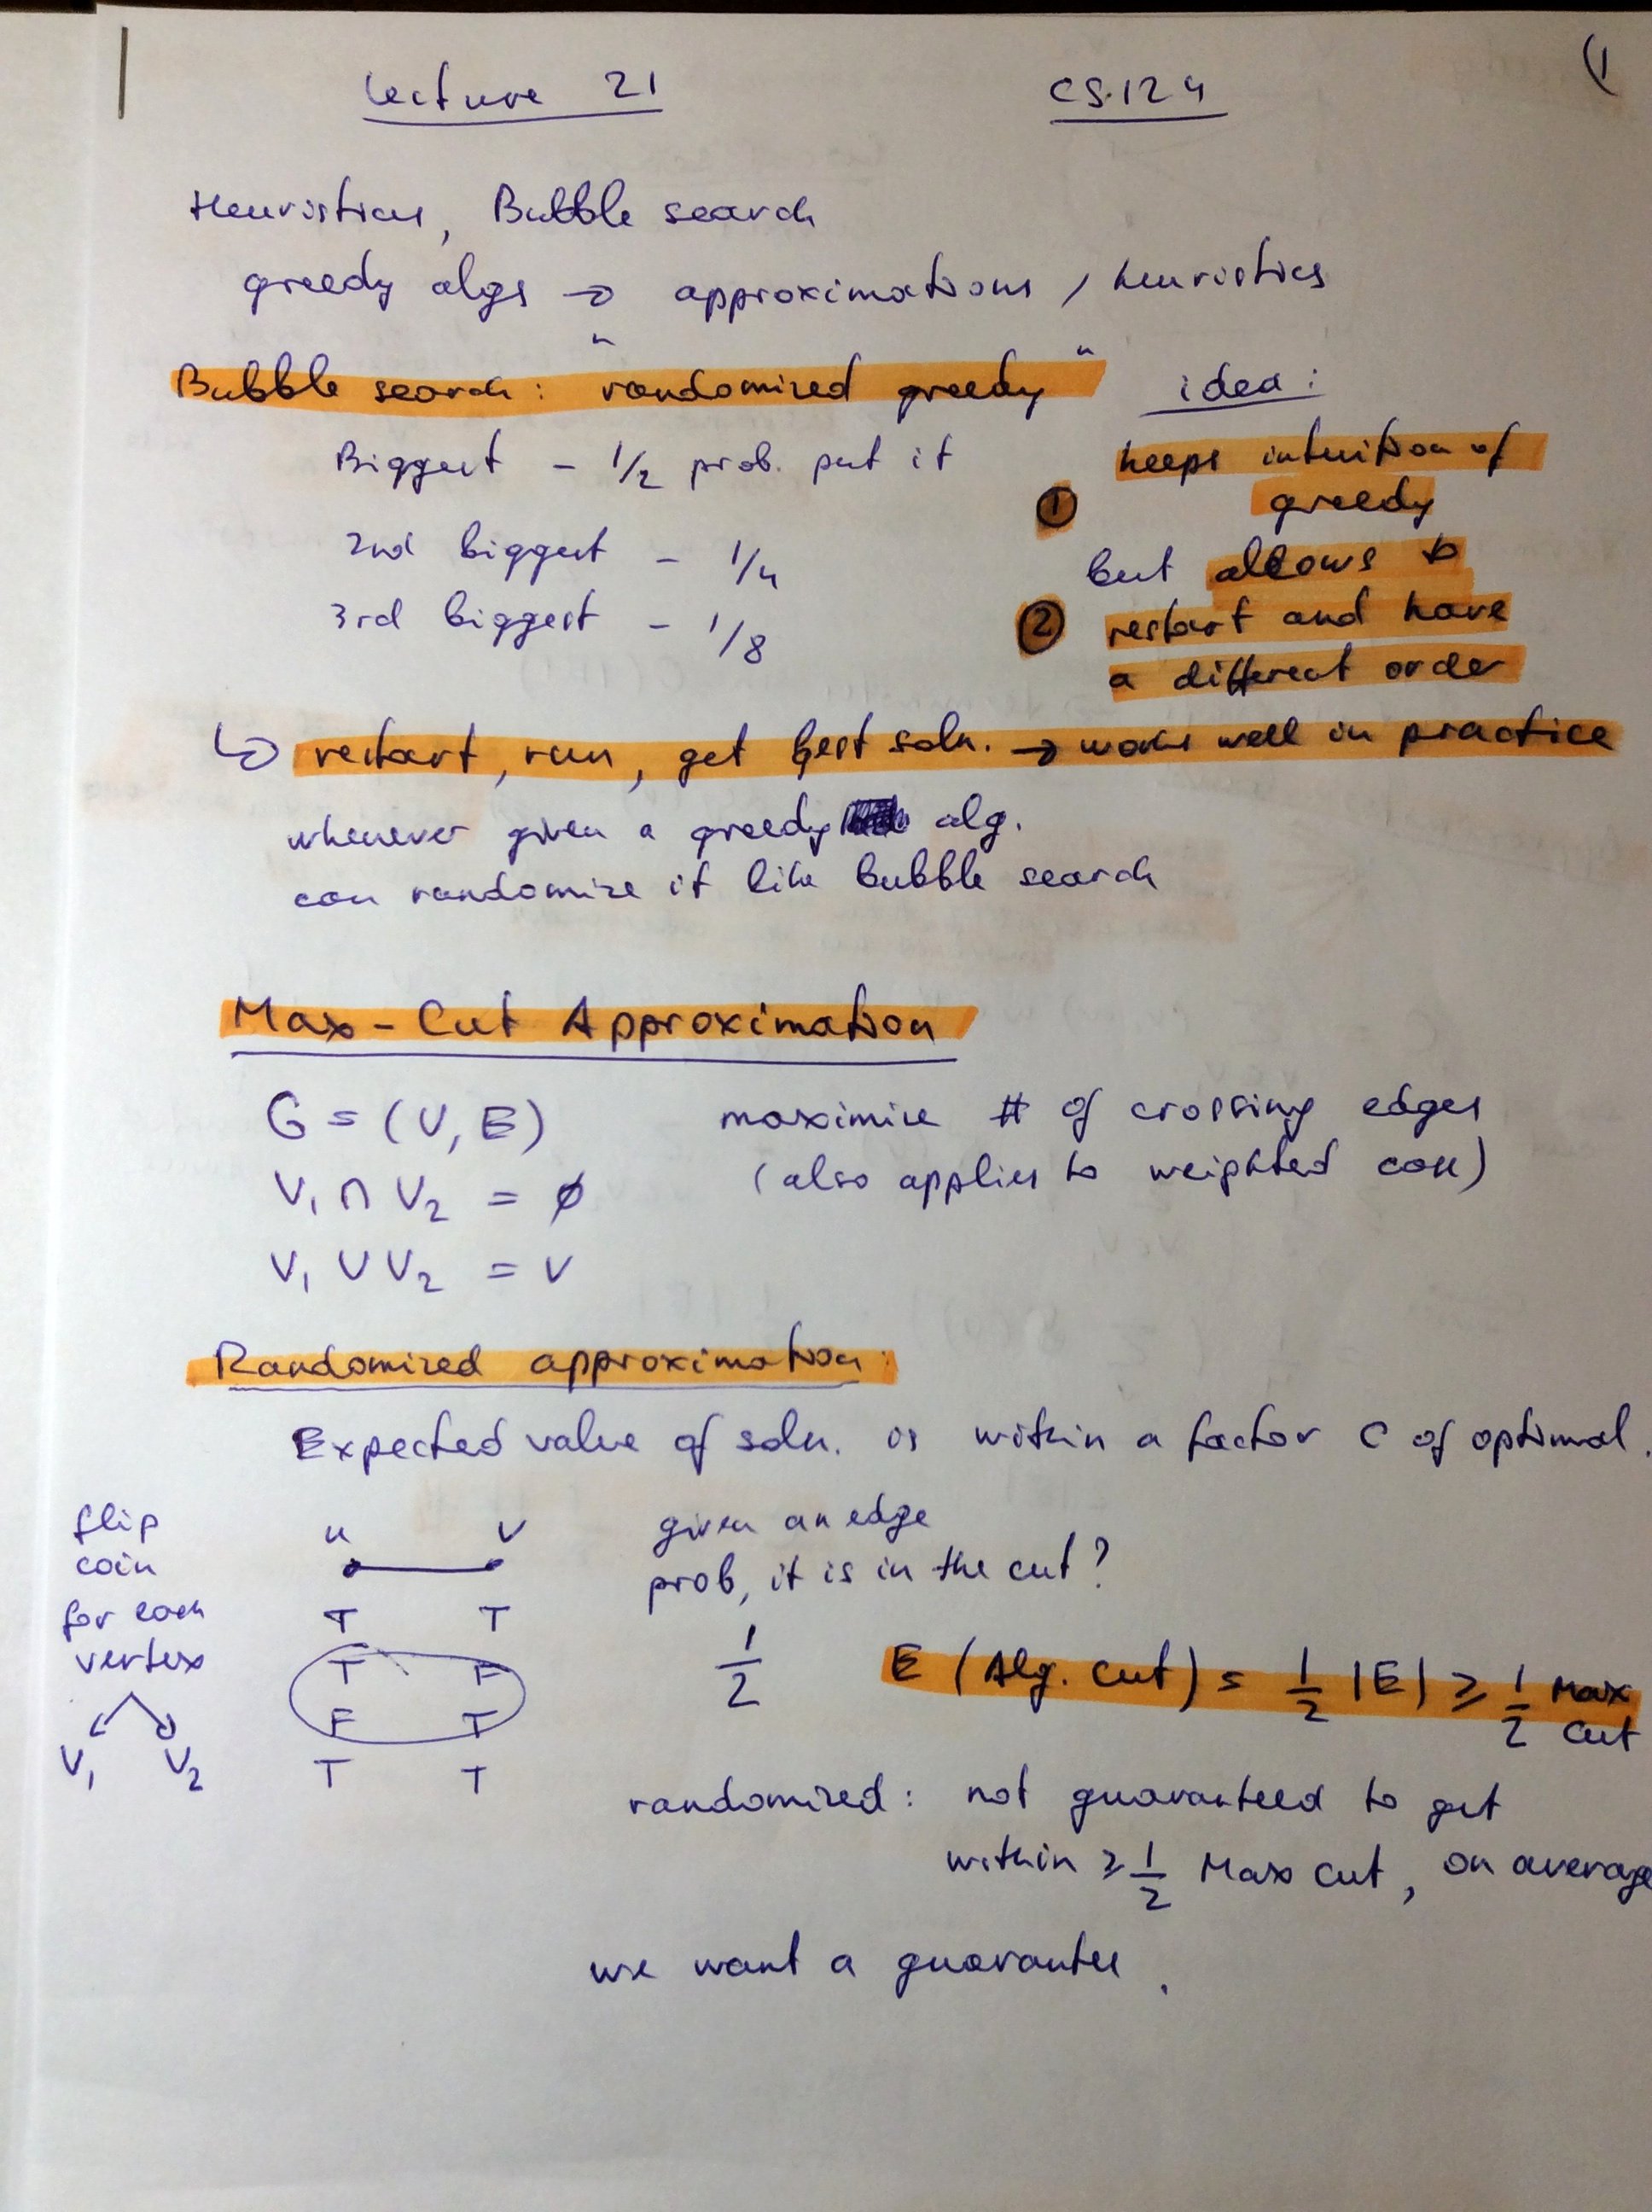 (1
Lecture 21 CS.124
Heuristics, Bubble search
greedy algs → approximations / heuristics
Bubble search: "randomized greedy"
Biggest - 1/2 prob. put it
2nd biggest - 1/4
3rd biggest - 1/8
idea:
① keeps intuition of
greedy
but allows to
② restart and have
a different order
↳ restart, run, get best soln. → works well in practice
whenever given a greedy alg.
can randomize it like bubble search
Max-Cut Approximation
G = (V, E)
V₁ ∩ V₂ = ∅
V₁ ∪ V₂ = V
maximize # of crossing edges
(also applies to weighted case)
Randomized approximation:
Expected value of soln. is within a factor C of optimal.
flip
coin
for each
vertex
V₁ V₂
u v
T T
T F
F T
T T
given an edge
prob, it is in the cut?
1/2
E (Alg. cut) = 1/2 |E| ≥ 1/2 Max
Cut
randomized: not guaranteed to get
within ≥ 1/2 Max Cut, on average
we want a guarantee.